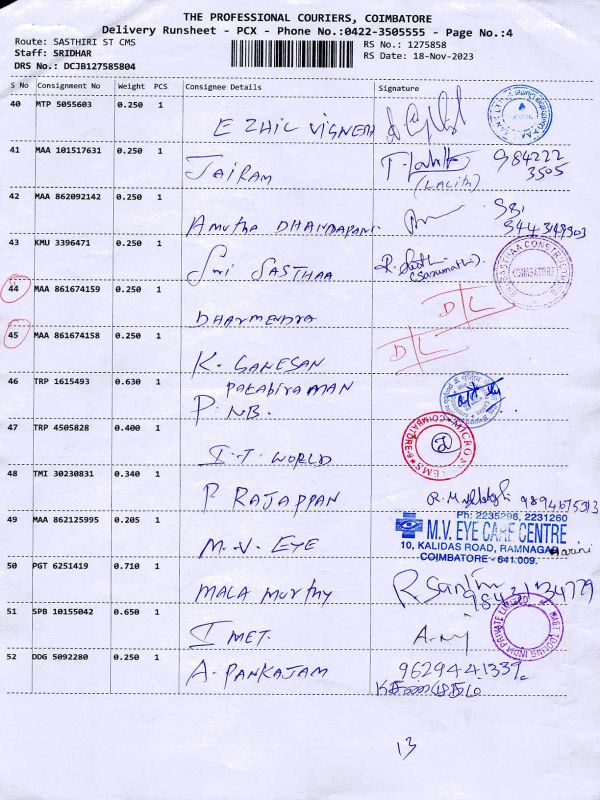 THE PROFESSIONAL COURIERS, COIMBATORE
Delivery Runsheet - PCX - Phone No.:0422-3505555 - Page No.:4
Route: SASTHIRI ST CMS
RS No.: 1275858
Staff: SRIDHAR
RS Date: 18-Nov-2023
DRS No.: DCJB127585804
S No Consignment No Weight PCS Consignee Details Signature
40 MTP 5055603 0.250 1
E ZHIL VIGNESH
41 MAA 101517631 0.250 1
JAIRAM
(LALITH)
984222
3505
42 MAA 862092142 0.250 1
Amutha DHANDAPANI
43 KMU 3396471 0.250 1
Sri SASTHAA
COIMBATORE
44 MAA 861674159 0.250 1
DHARMENDRA
D/L
45 MAA 861674158 0.250 1
K. GANESAN
D/L
46 TRP 1615493 0.630 1
PATTABIRAMAN
P. NB.
47 TRP 4505828 0.400 1
I.T. WORLD
48 TMI 30230831 0.340 1
P RAJAPPAN
49 MAA 862125995 0.205 1
M.V. EYE
Ph: 2235296, 2231260
M.V. EYE CARE CENTRE
10, KALIDAS ROAD, RAMNAGAR
COIMBATORE - 641 009.
50 PGT 6251419 0.710 1
MALA MURTHY
51 SPB 10155042 0.650 1
I MET.
MAGT TOOLING INDIA PRIVATE LIMITED
52 DDG 5092280 0.250 1
A. PANKAJAM
9629441339
13